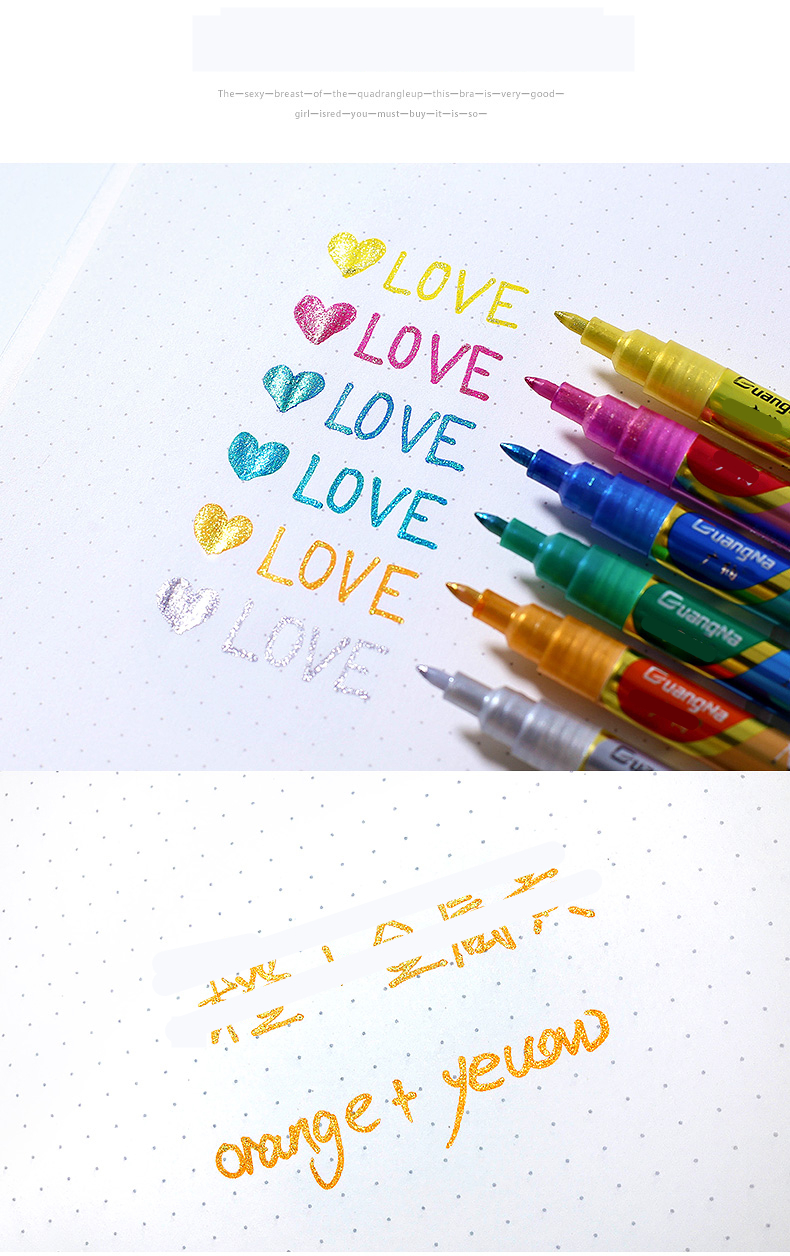 The—sexy—breast—of—the—quadrangleup—this—bra—is—very—good—
girl—isred—you—must—buy—it—is—so—
LOVE
LOVE
LOVE
LOVE
LOVE
LOVE
Guang
GuangNa
GuangNa
GuangNa
orange + yellow